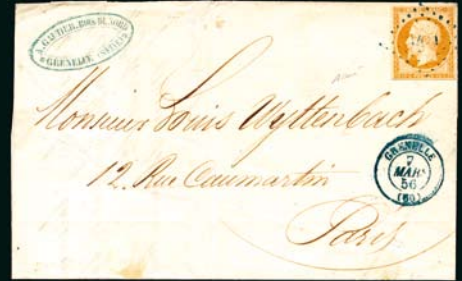 A. GAUTIER, BOIS DU NORD
GRENELLE (SEINE)
Monsieur Louis Wyttenbach
12. Rue Caumartin
Paris
GRENELLE
7
MARS
56
(60)